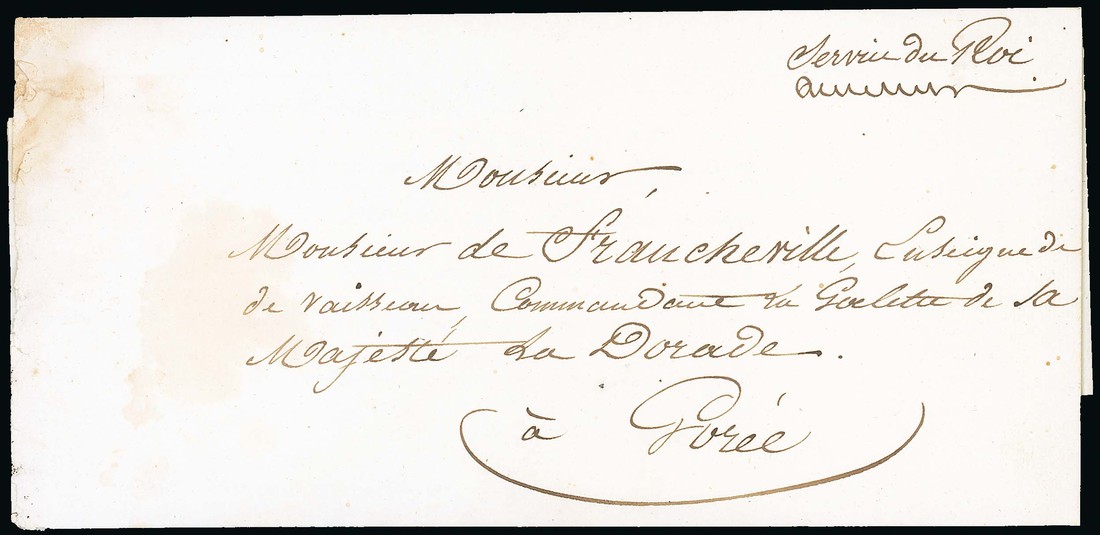 Service du Roi
Monsieur,
Monsieur de Francheville, Enseigne de
de vaisseau, Commandant la Goelette de Sa
Majesté La Dorade.
à Gorée